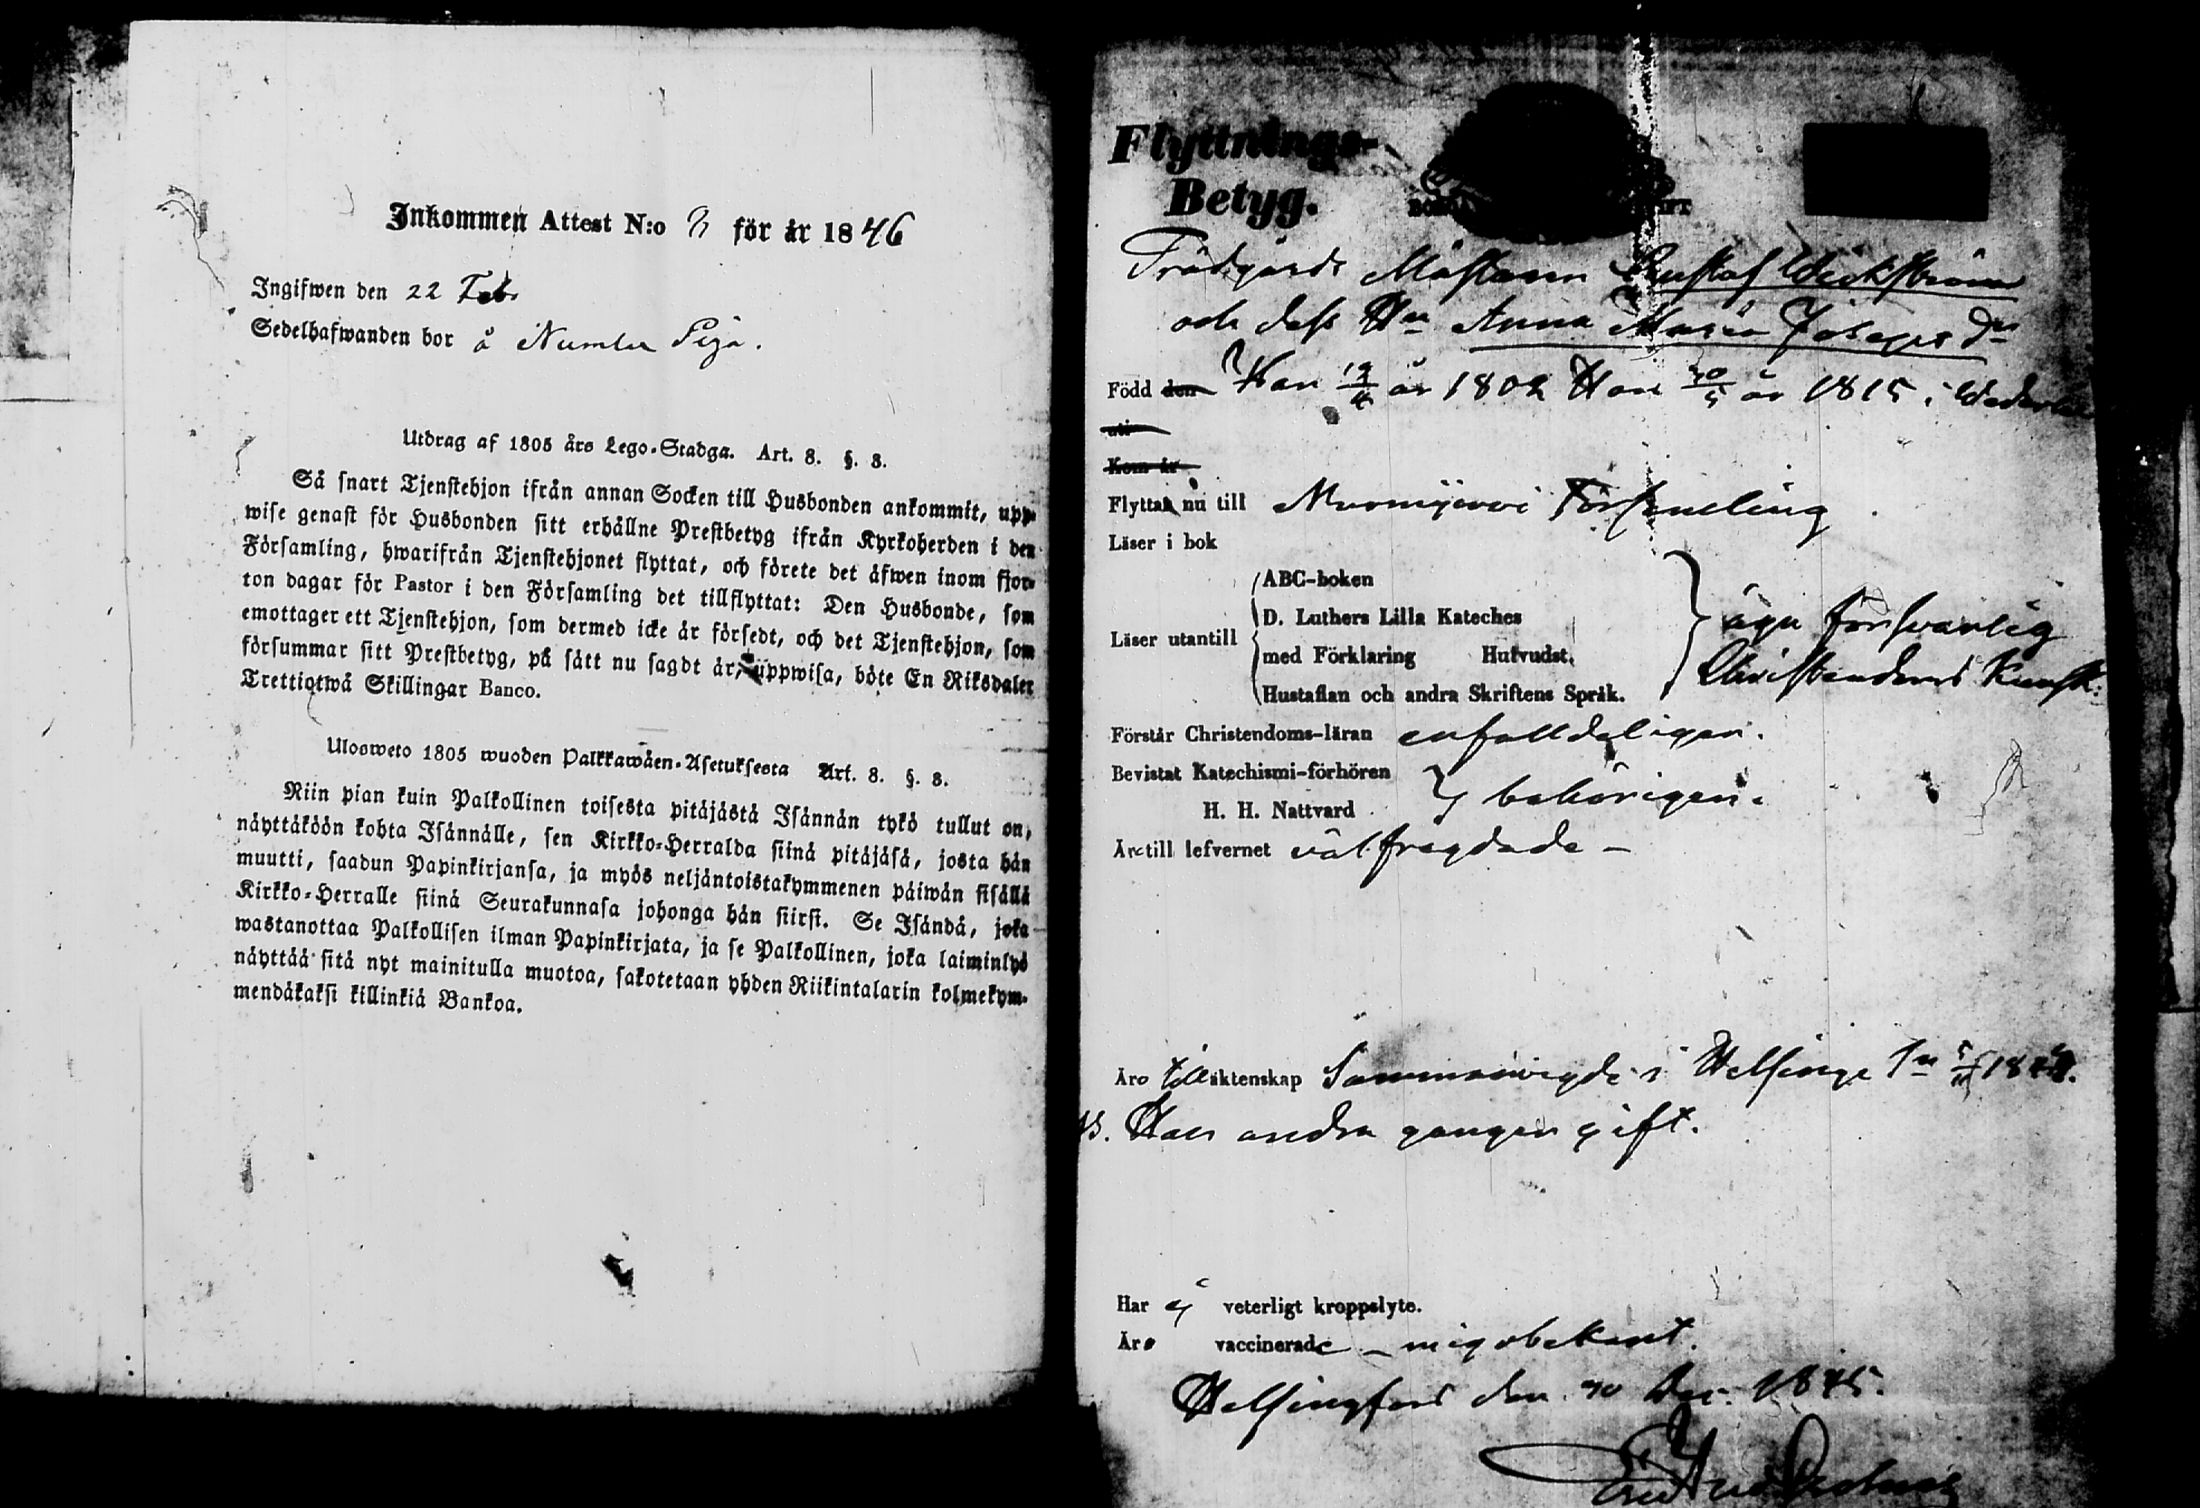 Inkommen Attest N:o 3 för år 1846
Ingifwen den 22 Feb.
Sedelhafwanden bor å Numla
Utdrag af 1805 års Lego-Stadga. Art. 8. §. 3.
Så snart Tjenstehjon ifrån annan Socken till Husbonden ankommit, upp-
wise genast för Husbonden sitt erhållne Prestbetyg ifrån Kyrkoherden i den
Församling, hwarifrån Tjenstehjonet flyttat, och förete det äfwen inom fjor-
ton dagar för Pastor i den Församling det tillflyttat: Den Husbonde, som
emottager ett Tjenstehjon, som dermed icke är försedt, och det Tjenstehjon, som
försummar sitt Prestbetyg, på sätt nu sagdt är, uppwisa, böte En Riksdaler
Trettiotwå Skillingar Banco.
Ulosweto 1805 wuoden Palkkawäen-Asetuksesta Art. 8. §. 3.
Niin pian kuin Palkollinen toisesta pitäjästä Isännän tykö tullut on,
näyttäköön kohta Isännälle, sen Kirkko-Herralda siinä pitäjäsä, josta hän
muutti, saadun Papinkirjansa, ja myös neljäntoistakymmenen päiwän sisällä
Kirkko-Herralle siinä Seurakunnasa johonga hän siirsi. Se Isändä, joka
wastanottaa Palkollisen ilman Papinkirjata, ja se Palkollinen, joka laiminlyö
näyttää sitä nyt mainitulla muotoa, sakotetaan yhden Riikintalarin kolmekym-
mendäkaksi killinkiä Bankoa.
Flyttnings-
Betyg.
Trädgårds Mästaren Gustaf Wickström
och dess Hu Anna Maria Josephs dr
Född den Han 19/4 år 1802 Hon 30/5 år 1815 i
uti
Kom år
Flytta nu till Nurmijervi Församling
Läser i bok
ABC-boken
D. Luthers Lilla Kateches
Läser utantill
med Förklaring Hufvudst.
Hustaflan och andra Skriftens Språk.
äga försvarlig
Christendoms Kunsk:
Förstår Christendoms-läran enfalldeligen.
Bevistat Katechismi-förhören
H. H. Nattvard
behörigen.
Äre till lefvernet välfrägdade –
Äro till äktenskap Sammanvigde i Helsinge Sn
Han andra gången gift.
Har ej veterligt kroppslyte.
Äro vaccinerade – mig obekant.
Helsingfors den 30 Dec. 1845.